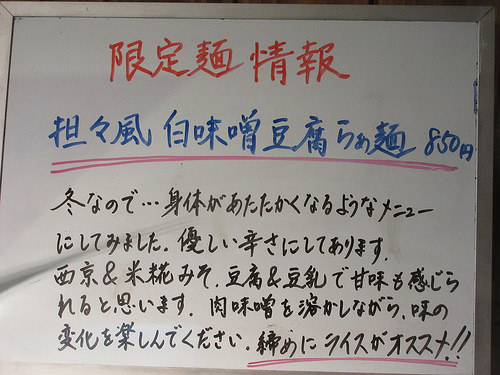 限定麺情報
担々風 白味噌豆腐らぁ麺 850円
冬なので…身体があたたかくなるようなメニュー
にしてみました。優しい辛さにしてあります。
西京&米糀みそ、豆腐&豆乳で甘味も感じら
れると思います。肉味噌を溶かしながら、味の
変化を楽しんでください。締めにライスがオススメ!!